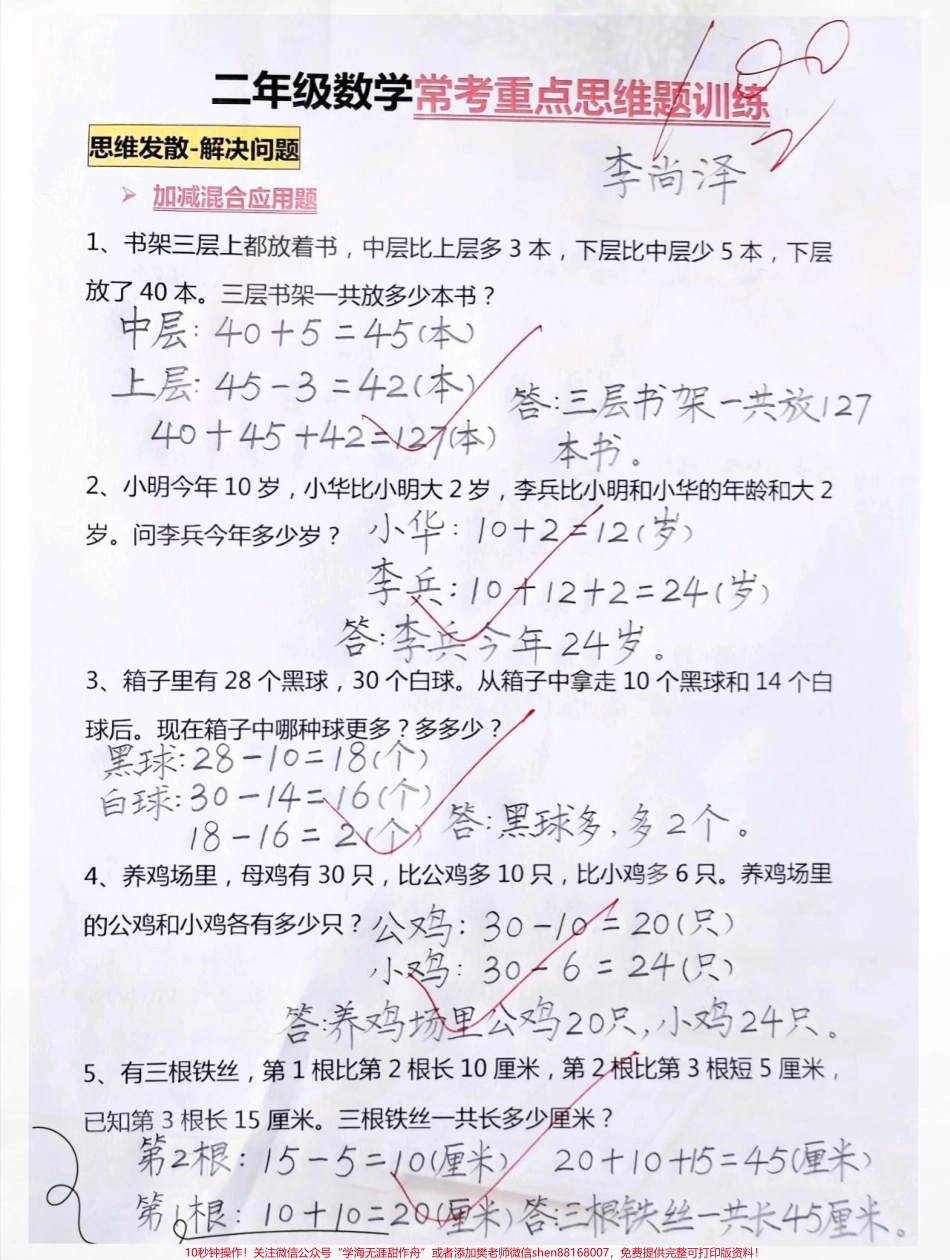 100
二年级数学常考重点思维题训练
思维发散-解决问题
李尚泽
➢ 加减混合应用题
1、书架三层上都放着书，中层比上层多 3 本，下层比中层少 5 本，下层
放了 40 本。三层书架一共放多少本书？
中层：40+5=45(本)
上层：45-3=42(本)
40+45+42=127(本)
答：三层书架一共放127
本书。
2、小明今年 10 岁，小华比小明大 2 岁，李兵比小明和小华的年龄和大 2
岁。问李兵今年多少岁？
小华：10+2=12(岁)
李兵：10+12+2=24(岁)
答：李兵今年24岁。
3、箱子里有 28 个黑球，30 个白球。从箱子中拿走 10 个黑球和 14 个白
球后。现在箱子中哪种球更多？多多少？
黑球：28-10=18(个)
白球：30-14=16(个)
18-16=2(个)
答：黑球多，多2个。
4、养鸡场里，母鸡有 30 只，比公鸡多 10 只，比小鸡多 6 只。养鸡场里
的公鸡和小鸡各有多少只？
公鸡：30-10=20(只)
小鸡：30-6=24(只)
答：养鸡场里公鸡20只，小鸡24只。
5、有三根铁丝，第 1 根比第 2 根长 10 厘米，第 2 根比第 3 根短 5 厘米，
已知第 3 根长 15 厘米。三根铁丝一共长多少厘米？
第2根：15-5=10(厘米) 20+10+15=45(厘米)
第1根：10+10=20(厘米) 答：三根铁丝一共长45厘米。
10秒钟操作！关注微信公众号“学海无涯甜作舟”或者添加樊老师微信shen88168007，免费提供完整可打印版资料！